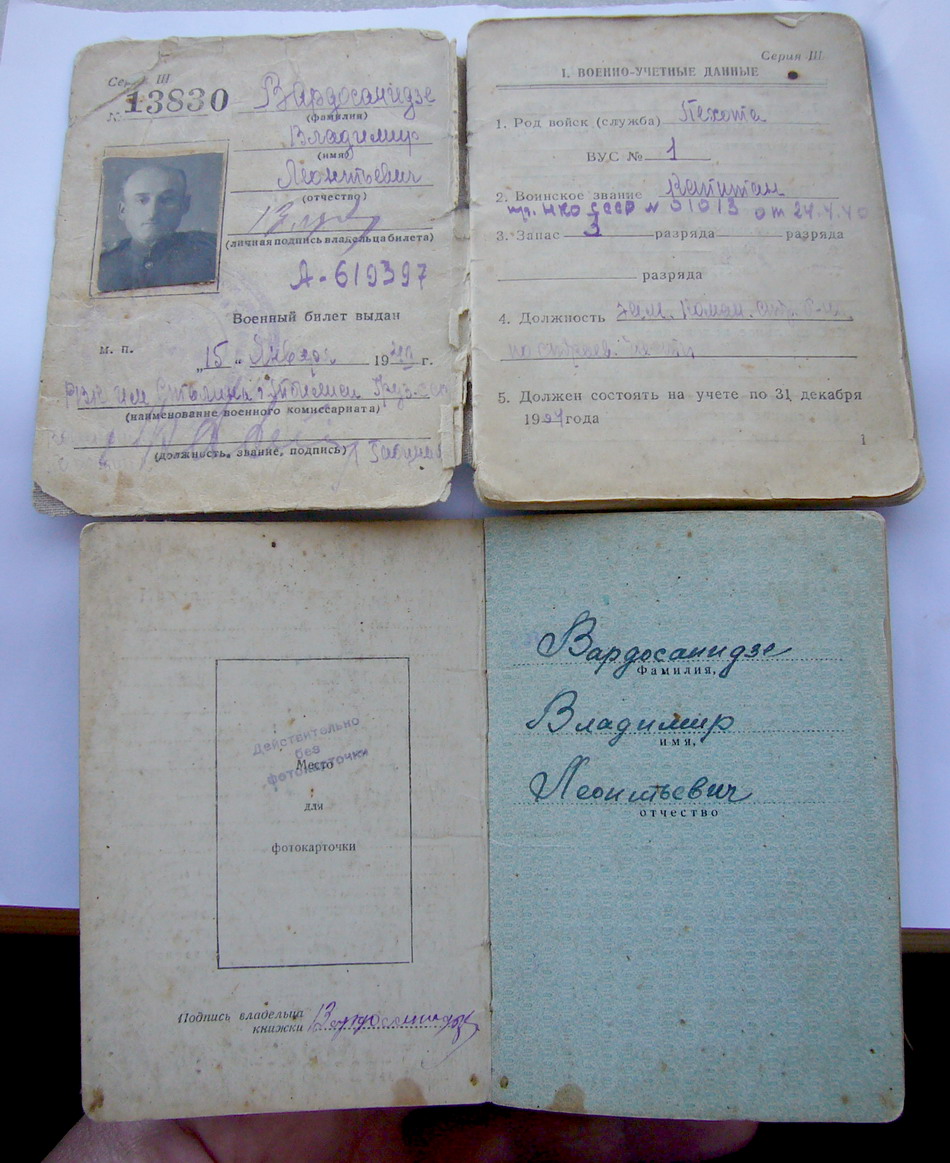 Серия III
№ 13830
Вардосанидзе
(фамилия)
Владимир
(имя)
Леонтьевич
(отчество)
(личная подпись владельца билета)
А-619397
Военный билет выдан
м. п.
„15“ Января 19 г.
РВК им Сталина г Тбилиси
(наименование военного комиссариата)
(должность, звание, подпись)
Серия III
I. ВОЕННО-УЧЕТНЫЕ ДАННЫЕ
1. Род войск (служба) Пехота
ВУС № 1
2. Воинское звание Капитан
пр. НКО СССР № 01013 от 24.4.40
3. Запас 3 разряда разряда
разряда
4. Должность
5. Должен состоять на учете по 31 декабря
19 года
1
Действительно
без
фотокарточки
Место
для
фотокарточки
Подпись владельца
книжки Вардосанидзе
Вардосанидзе
фамилия,
Владимир
имя,
Леонтьевич
отчество